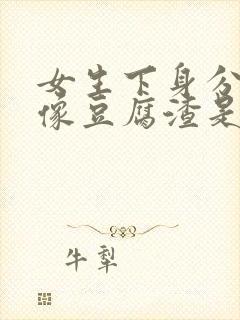 女生下身分
像豆腐渣是
牛犁